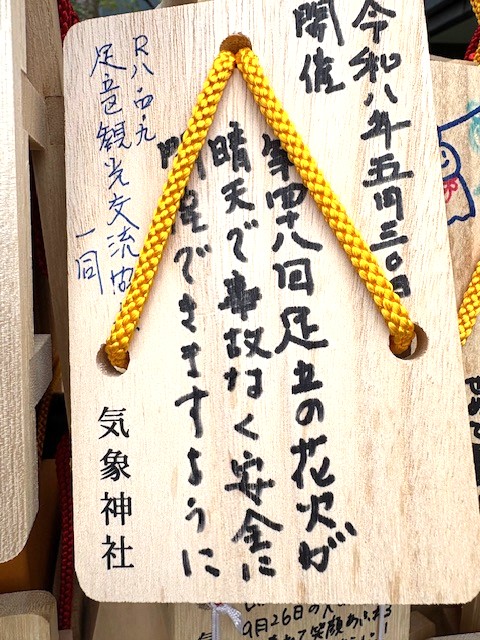 令和八年五月三〇日
開催
第四十八回足立の花火が
晴天で事故なく安全に
開催できますように
R八・四・九
足立区観光交流協
一同
気象神社
9月26日の
笑顔あふれる